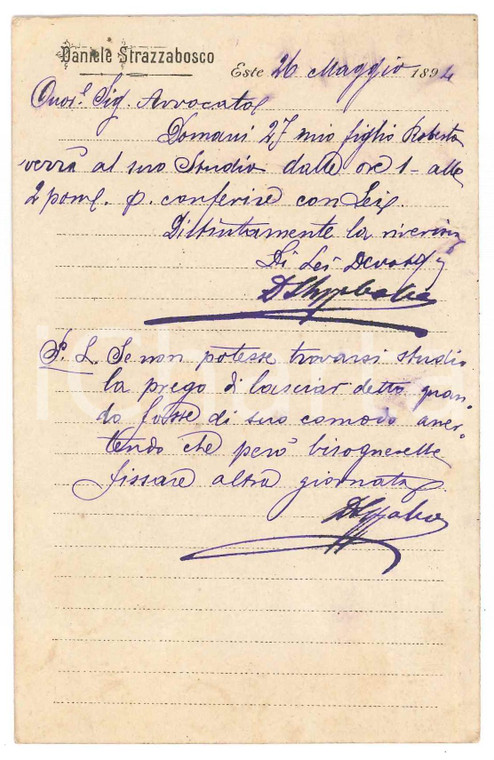 Daniele Strazzabosco
Este 26 Maggio 1894
Onor.e Sig. Avvocato
Domani 27 mio figlio Roberto
verrà al suo Studio dalle ore 1 - alle
2 pome. p. conferire con Lei.
Distintamente la riverisco
Di Lei Devotoo
DStrazzabosco
P. S. Se non potesse trovarsi studio
la prego di lasciar detto quan-
do fosse di suo comodo aver-
tendo che però bisognerebbe
fissare altra giornata